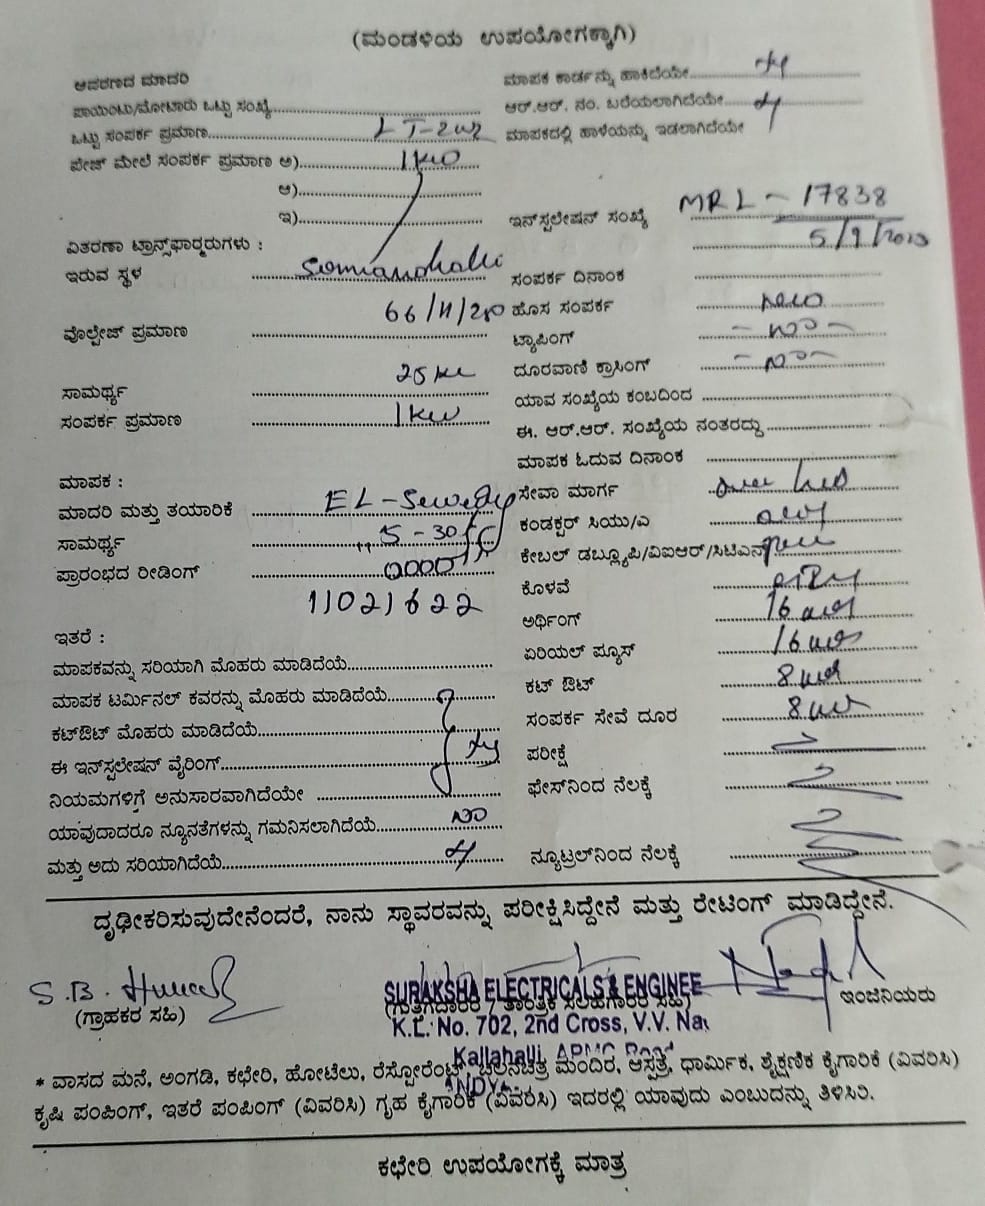 (ಮಂಡಳಿಯ ಉಪಯೋಗಕ್ಕಾಗಿ)
ಆವರಣದ ಮಾದರಿ
ಮಾಪಕ ಕಾರ್ಡನ್ನು ಹಾಕಿದೆಯೇ
ಪಾಯಿಂಟು/ಮೋಟಾರು ಒಟ್ಟು ಸಂಖ್ಯೆ
ಆರ್.ಆರ್. ನಂ. ಬರೆಯಲಾಗಿದೆಯೇ
ಒಟ್ಟು ಸಂಪರ್ಕ ಪ್ರಮಾಣ LT-2
ಮಾಪಕದಲ್ಲಿ ಹಾಳೆಯನ್ನು ಇಡಲಾಗಿದೆಯೇ
ಪೇಜ್ ಮೇಲೆ ಸಂಪರ್ಕ ಪ್ರಮಾಣ ಅ) 1 kw
ಆ)
ಇ)
ಇನ್‌ಸ್ಟಲೇಷನ್ ಸಂಖ್ಯೆ MRL - 17838
ವಿತರಣಾ ಟ್ರಾನ್ಸ್‌ಫಾರ್‍ಮರುಗಳು :
ಇರುವ ಸ್ಥಳ
ಸಂಪರ್ಕ ದಿನಾಂಕ
66/11/
ಹೊಸ ಸಂಪರ್ಕ new
ವೊಲ್ಟೇಜ್ ಪ್ರಮಾಣ
ಟ್ಯಾಪಿಂಗ್ - no -
ಸಾಮರ್ಥ್ಯ 25
ದೂರವಾಣಿ ಕ್ರಾಸಿಂಗ್ - no -
ಸಂಪರ್ಕ ಪ್ರಮಾಣ 1 kw
ಯಾವ ಸಂಖ್ಯೆಯ ಕಂಬದಿಂದ
ಈ. ಆರ್.ಆರ್. ಸಂಖ್ಯೆಯ ನಂತರದ್ದು
ಮಾಪಕ ಓದುವ ದಿನಾಂಕ
ಮಾಪಕ :
ಮಾದರಿ ಮತ್ತು ತಯಾರಿಕೆ EL-Sewedy
ಸೇವಾ ಮಾರ್ಗ
ಸಾಮರ್ಥ್ಯ 5-30
ಕಂಡಕ್ಟರ್ ಸಿಯು/ಎ
ಪ್ರಾರಂಭದ ರೀಡಿಂಗ್
ಕೇಬಲ್ ಡಬ್ಲ್ಯೂಪಿ/ವಿಐಆರ್/ಸಿಟಿಎಸ್
11021622
ಕೊಳವೆ
ಅರ್ಥಿಂಗ್ 16
ಇತರೆ :
ಮಾಪಕವನ್ನು ಸರಿಯಾಗಿ ಮೊಹರು ಮಾಡಿದೆಯೆ
ಏರಿಯಲ್ ಫ್ಯೂಸ್ 16
ಮಾಪಕ ಟರ್ಮಿನಲ್ ಕವರನ್ನು ಮೊಹರು ಮಾಡಿದೆಯೆ
ಕಟ್ ಔಟ್ 8
ಕಟ್‌ಔಟ್ ಮೊಹರು ಮಾಡಿದೆಯೆ
ಸಂಪರ್ಕ ಸೇವೆ ದೂರ 8
ಈ ಇನ್‌ಸ್ಟಲೇಷನ್ ವೈರಿಂಗ್
ಪರೀಕ್ಷೆ
ನಿಯಮಗಳಿಗೆ ಅನುಸಾರವಾಗಿದೆಯೇ
ಫೇಸ್‌ನಿಂದ ನೆಲಕ್ಕೆ
ಯಾವುದಾದರೂ ನ್ಯೂನತೆಗಳನ್ನು ಗಮನಿಸಲಾಗಿದೆಯೆ no
ಮತ್ತು ಅದು ಸರಿಯಾಗಿದೆಯೆ
ನ್ಯೂಟ್ರಲ್‌ನಿಂದ ನೆಲಕ್ಕೆ
ದೃಢೀಕರಿಸುವುದೇನೆಂದರೆ, ನಾನು ಸ್ಥಾವರವನ್ನು ಪರೀಕ್ಷಿಸಿದ್ದೇನೆ ಮತ್ತು ರೇಟಿಂಗ್ ಮಾಡಿದ್ದೇನೆ.
S.B.
SURAKSHA ELECTRICALS & ENGINEE
(ಗ್ರಾಹಕರ ಸಹಿ)
(ಗುತ್ತಿಗೆದಾರರ / ತಾಂತ್ರಿಕ ಸಲಹೆಗಾರರ ಸಹಿ)
ಇಂಜಿನಿಯರು
K.L. No. 702, 2nd Cross, V.V. Na
Kallahalli, APMC Road
* ವಾಸದ ಮನೆ, ಅಂಗಡಿ, ಕಛೇರಿ, ಹೋಟೆಲು, ರೆಸ್ಟೋರೆಂಟ್, ಚಲನಚಿತ್ರ ಮಂದಿರ, ಆಸ್ಪತ್ರೆ, ಧಾರ್ಮಿಕ, ಶೈಕ್ಷಣಿಕ ಕೈಗಾರಿಕೆ (ವಿವರಿಸಿ)
ಕೃಷಿ ಪಂಪಿಂಗ್, ಇತರೆ ಪಂಪಿಂಗ್ (ವಿವರಿಸಿ) ಗೃಹ ಕೈಗಾರಿಕೆ (ವಿವರಿಸಿ) ಇದರಲ್ಲಿ ಯಾವುದು ಎಂಬುದನ್ನು ತಿಳಿಸಿರಿ.
ಕಛೇರಿ ಉಪಯೋಗಕ್ಕೆ ಮಾತ್ರ